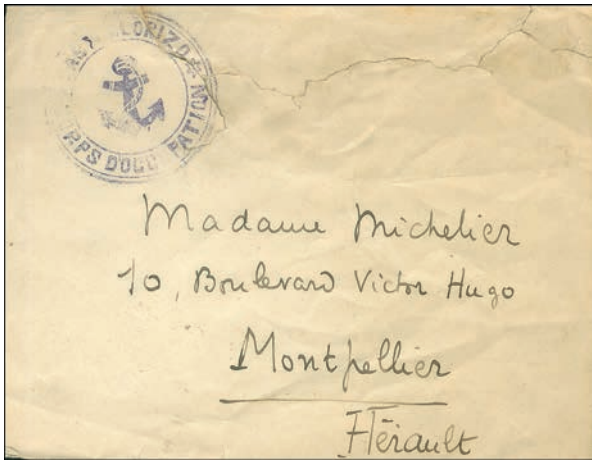 LORIZO
RPS D'OCC PATION
Madame Michelier
10, Boulevard Victor Hugo
Montpellier
Hérault